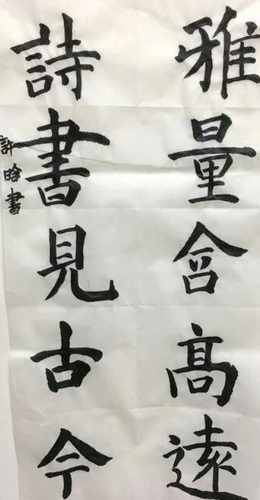 雅量含高遠
詩書見古今
許晗書